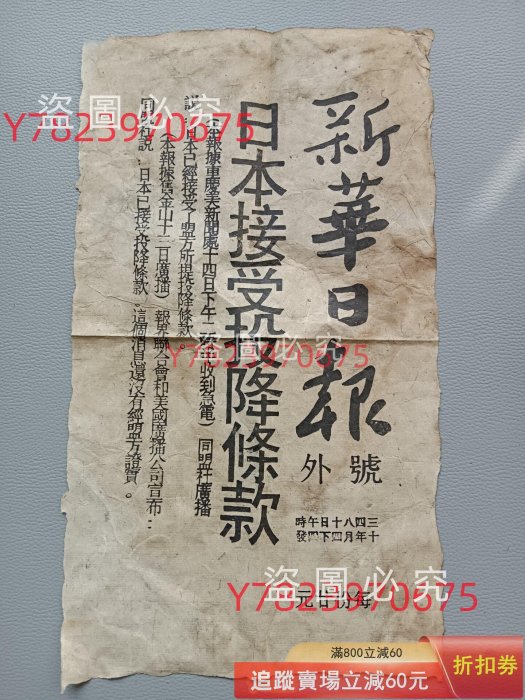 新華日報
號外
三十四年八月十四日下午四時發
每份廿元
日本接受投降條款
（本報據重慶美新聞處十四日下午二時 收到急電）同盟社廣播
說：日本已經接受了盟方所提投降條款。
（本報據舊金山十二日廣播）報界聯合會和美國廣播公司宣布：
同盟社說：日本已接受投降條款。這個消息還沒有經盟方證實。
盜圖必究
Y7823970675
盜圖必究
Y7823970675
盜圖必究
Y7823970675
滿800立減60
追蹤賣場立減60元
折扣券